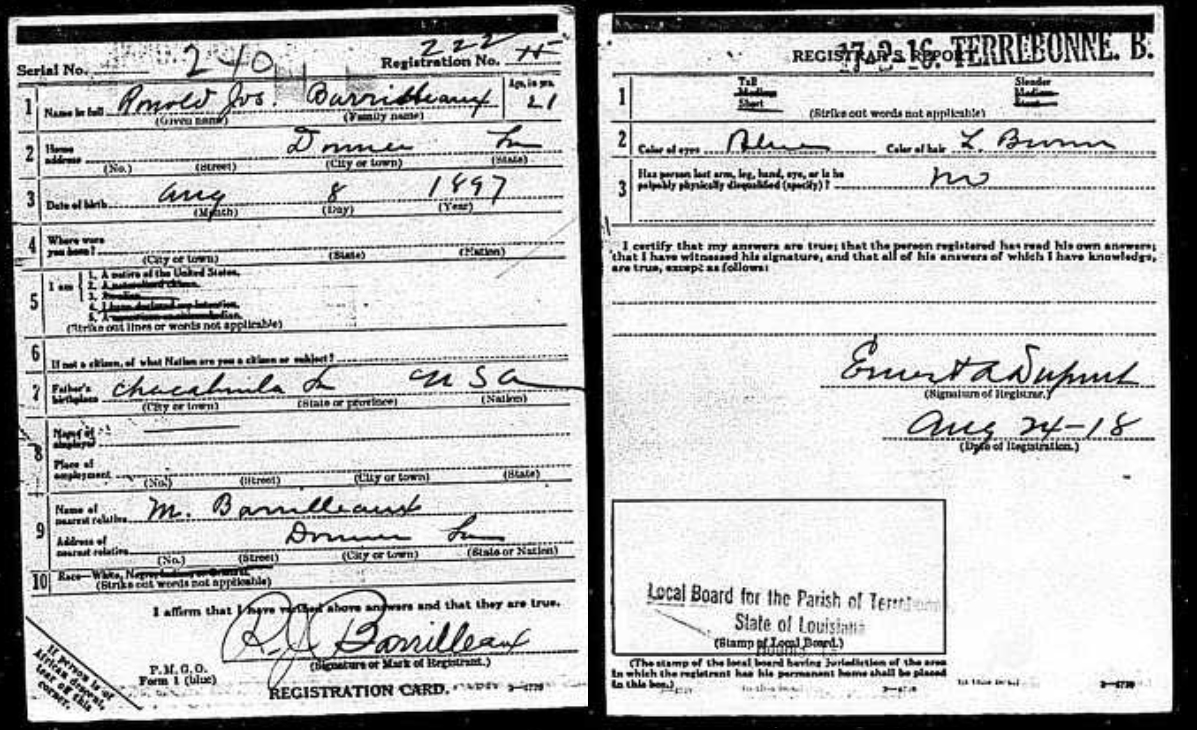 Serial No. 240 Registration No. 222
1 Name in full Ronold Jos. Barrilleaux Age, in yrs. 21
(Given name) (Family name)
2 Home address Donner La
(No.) (Street) (City or town) (State)
3 Date of birth Aug 8 1897
(Month) (Day) (Year)
4 Where were you born?
(City or town) (State) (Nation)
5 I am
1. A native of the United States.
2. A naturalized citizen.
3. An alien
4. I have declared my intention.
5. A
(Strike out lines or words not applicable)
6 If not a citizen, of what Nation are you a citizen or subject?
7 Father's birthplace Chacahoula La USA
(City or town) (State or province) (Nation)
8 Name of employer
Place of employment
(No.) (Street) (City or town) (State)
9 Name of nearest relative M. Barrilleaux
Address of nearest relative Donner La
(No.) (Street) (City or town) (State or Nation)
10 Race—White, Negro, Indian, or Oriental.
(Strike out words not applicable)
I affirm that I have verified above answers and that they are true.
R. J. Barrilleaux
(Signature or Mark of Registrant.)
P. M. G. O.
Form 1 (blue)
REGISTRATION CARD.
If person is of African descent, tear off this corner.
REGISTRAR'S REPORT 17-2-16. TERREBONNE. B.
1 Tall Medium Short Slender Medium Stout
(Strike out words not applicable)
2 Color of eyes Blue Color of hair L. Brown
3 Has person lost arm, leg, hand, eye, or is he palpably physically disqualified (specify)? no
I certify that my answers are true; that the person registered has read his own answers;
that I have witnessed his signature, and that all of his answers of which I have knowledge,
are true, except as follows:
Ernest A Dupont
(Signature of Registrar.)
Aug 24-18
(Date of Registration.)
Local Board for the Parish of Terrebonne,
State of Louisiana
(Stamp of Local Board.)
Houma
(The stamp of the local board having jurisdiction of the area
in which the registrant has his permanent home shall be placed
in this box.)